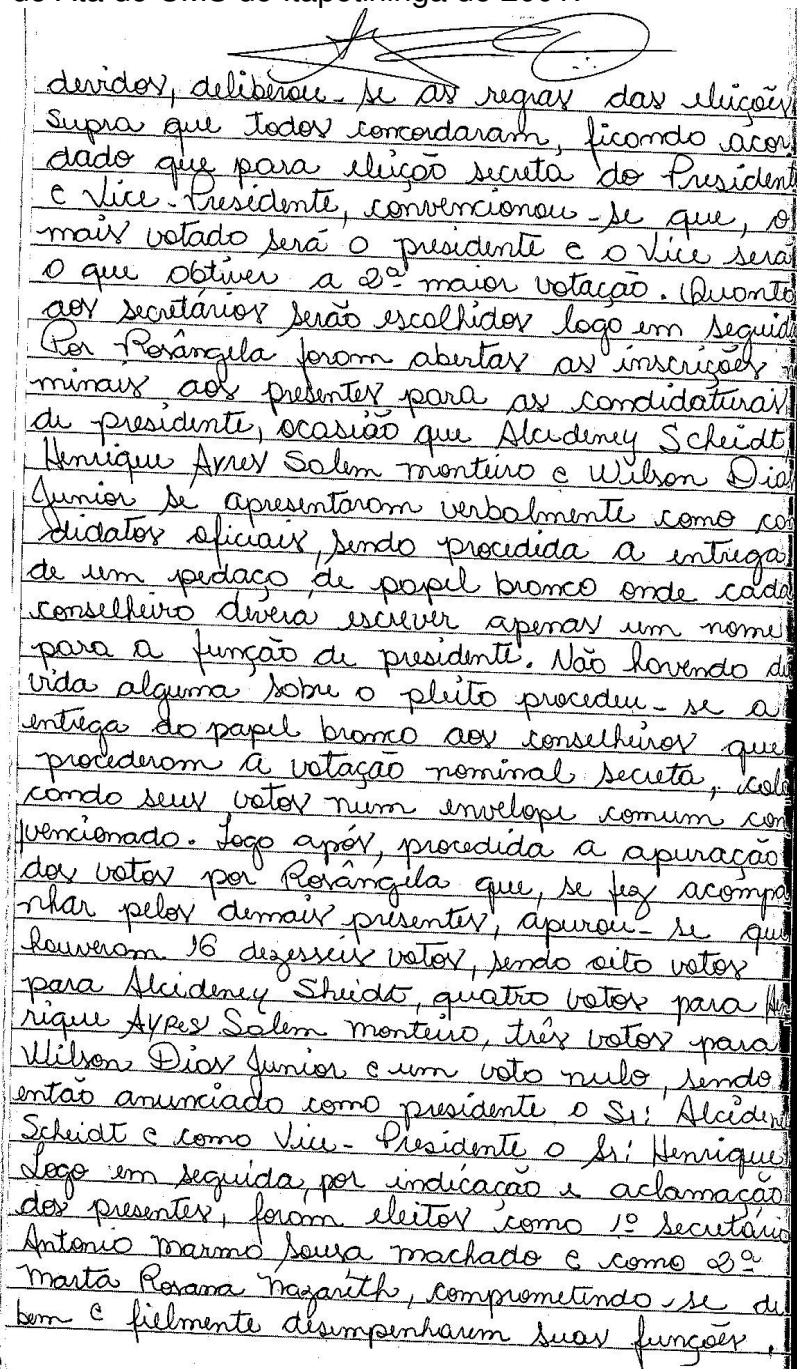 de Ata do CMS de Itapetininga de 2001.
devidos, deliberou-se as regras das eleições
supra que todos concordaram, ficando acor
dado que para eleição secreta do President
e Vice-Presidente, convencionou-se que, o
mais votado será o presidente e o Vice será
o que obtiver a 2ª maior votação. Quanto
aos secretários serão escolhidos logo em seguid
Por Rosângela foram abertas as inscrições
minais aos presentes para as candidaturas
de presidente, ocasião que Alcideney Scheidt,
Henrique Ayres Salem monteiro e Wilson Dia
Junior se apresentaram verbalmente como ca
didatos oficiais, sendo procedida a entrega
de um pedaço de papel branco onde cada
conselheiro deverá escrever apenas um nome
para a função de presidente. Não havendo dú
vida alguma sobre o pleito procedeu-se a
entrega do papel branco aos conselheiros que
procederam a votação nominal secreta, colo
cando seus votos num envelope comum con
vencionado. Logo após, procedida a apuração
dos votos por Rosângela que, se fez acompa
nhar pelos demais presentes, apurou-se que
houveram 16 dezesseis votos, sendo oito votos
para Alcideney Sheidt, quatro votos para Hen
rique Ayres Salem monteiro, três votos para
Wilson Dias Junior e um voto nulo, sendo
então anunciado como presidente o Sr: Alciden
Scheidt e como Vice-Presidente o Sr: Henrique
Logo em seguida, por indicação e aclamação
dos presentes, foram eleitos como 1º secretário
Antonio marmo Sousa machado e como 2ª
marta Rosana Nazarith, comprometindo-se de
bem e fielmente desempenharem suas funções.